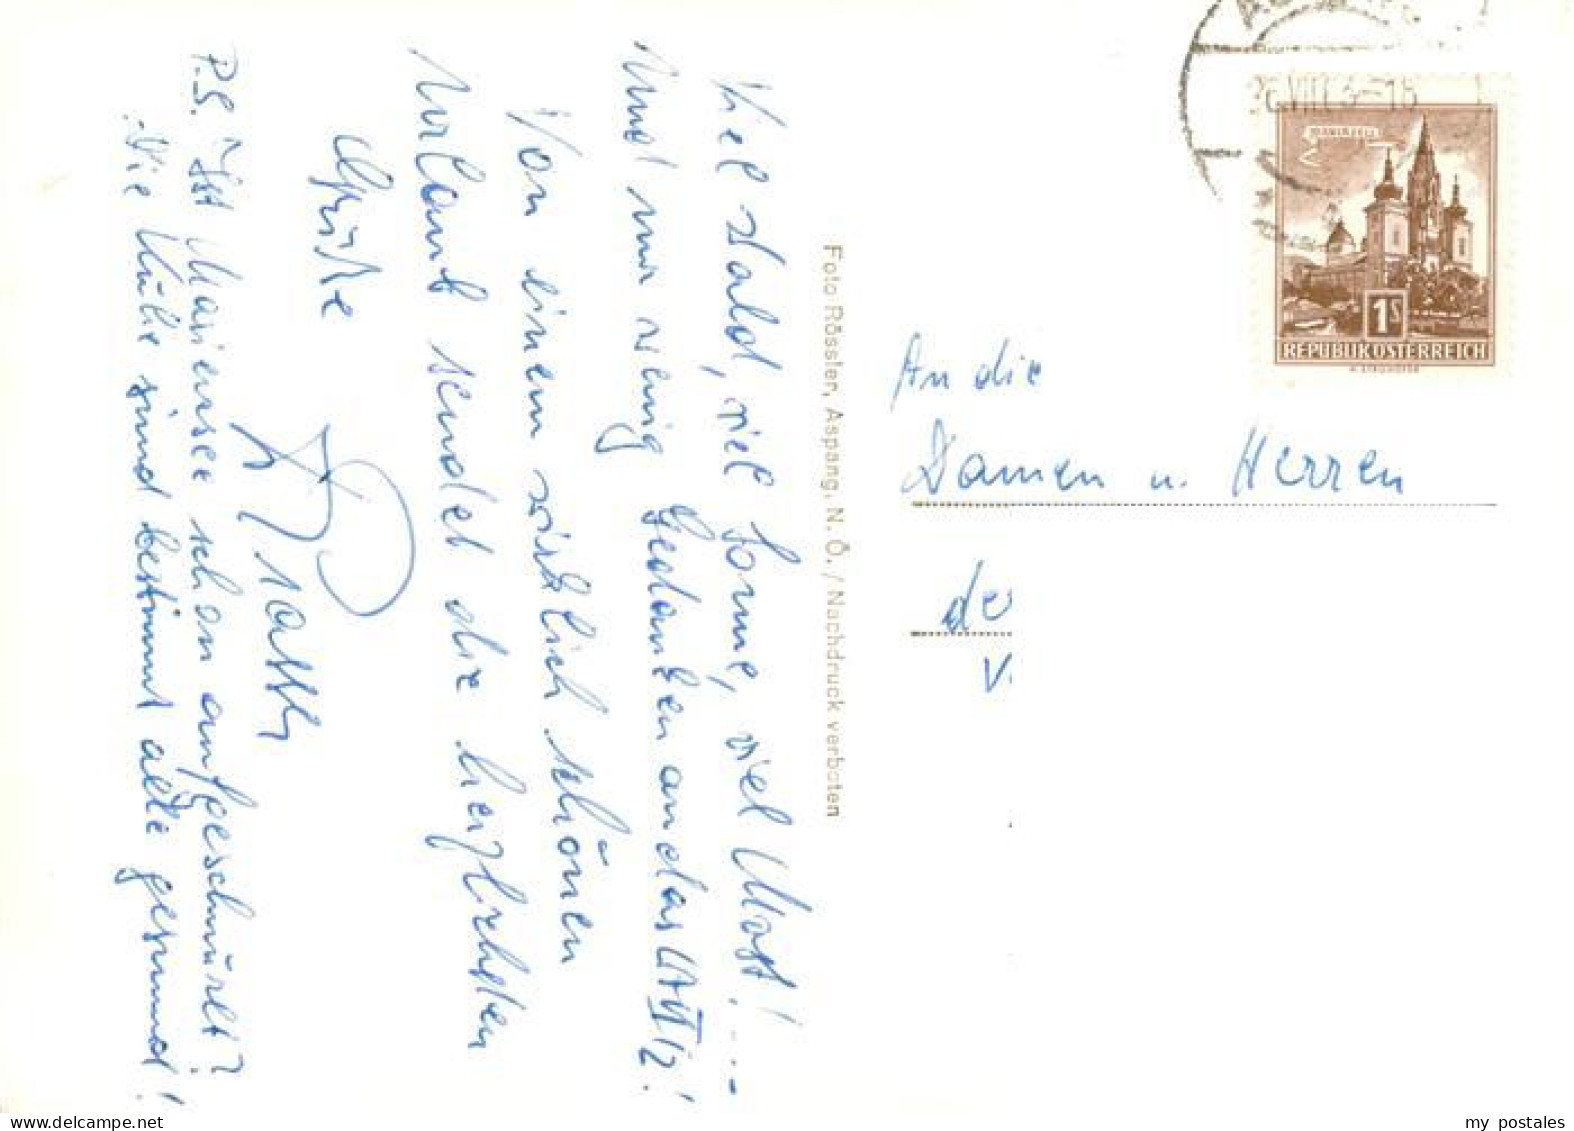 Viel Wald, viel Sonne, viel Most!...-
Und nur wenig Gedanken an das
Von einem wirklich schönen
Urlaub sendet die herzlichsten
Grüße
P.S. Ist Mariensee schon aufgeschnürlt?
Die Kühe sind bestimmt alle gesund!
Foto Rössler, Aspang, N. Ö. / Nachdruck verboten
MARIAZELL
1S
REPUBLIK ÖSTERREICH
An die
Damen u. Herren
de
V.
my postales